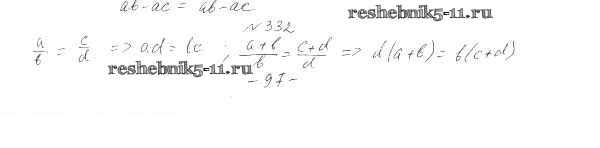 ab-ac = ab-ac
reshebnik5-11.ru
№332
a/b = c/d => ad = bc ; (a+b)/b = (c+d)/d => d(a+b) = b(c+d)
reshebnik5-11.ru
-97-